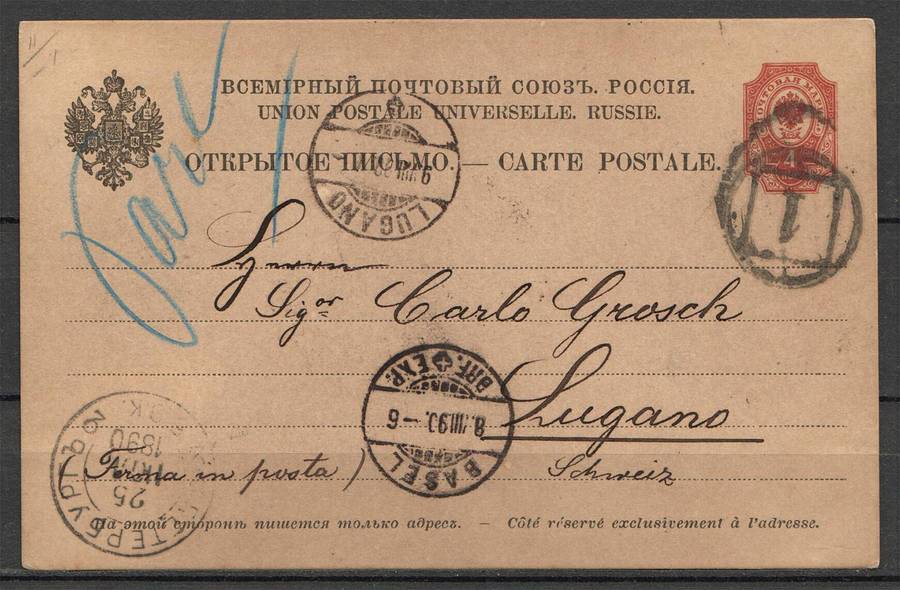 ВСЕМІРНЫЙ ПОЧТОВЫЙ СОЮЗЪ. РОССІЯ.
UNION POSTALE UNIVERSELLE. RUSSIE.
ОТКРЫТОЕ ПИСЬМО. — CARTE POSTALE.
4
1
LUGANO
Herrn
Sigor Carlo Grosch
BASEL
8.VIII.90.–6
BRF. EXP.
Lugano
Schweiz
(Ferma in posta)
25
1890
На этой сторонѣ пишется только адресъ. – Côté réservé exclusivement à l'adresse.